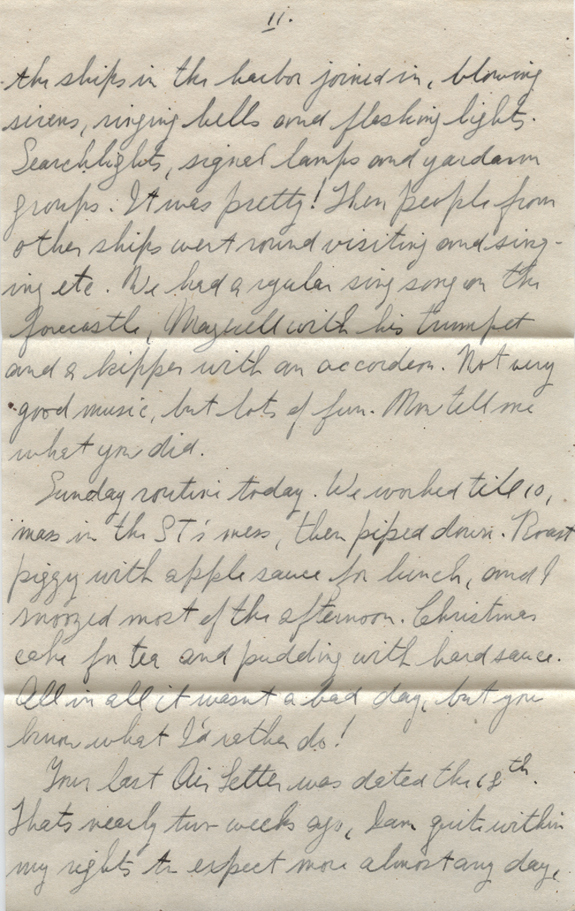 11.
the ships in the harbor joined in, blowing
sirens, ringing bells and flashing lights.
Searchlights, signal lamps and yardarm
groups. It was pretty! Then people from
other ships went round visiting and sing-
ing etc. We had a regular sing song on the
forecastle, Maxwell with his trumpet
and a kipper with an accordeon. Not very
good music, but lots of fun. Now tell me
what you did.
Sunday routine today. We worked till 10,
mass in the ST's mess, then piped down. Roast
piggy with apple sauce for lunch, and I
snoozed most of the afternoon. Christmas
cake for tea and pudding with hard sauce.
All in all it wasnt a bad day, but you
know what I'd rather do!
Your last Air Letter was dated the 18th.
Thats nearly two weeks ago, I am quite within
my rights to expect more almost any day,